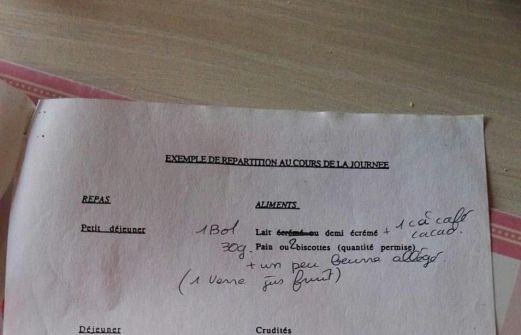 EXEMPLE DE REPARTITION AU COURS DE LA JOURNEE
REPAS ALIMENTS
Petit déjeuner 1 Bol Lait écrémé ou demi écrémé + 1 c à café cacao.
30g. Pain ou 2 biscottes (quantité permise)
+ un peu beurre allégé.
(1 verre jus fruit)
Déjeuner Crudités